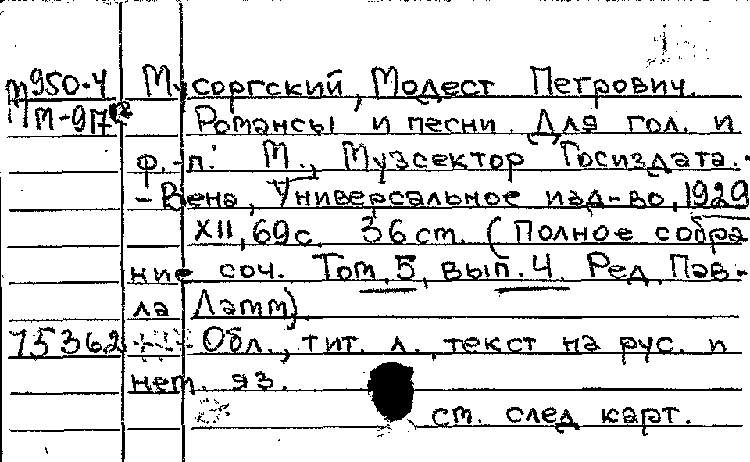 М950-4 Мусоргский, Модест Петрович.
М-917 Романсы и песни. Для гол. и
ф.-п. М., Музсектор Госиздата.-
- Вена, Универсальное изд-во, 1929
XII, 69 с. 36 cm. (Полное собра
ние соч. Том. 5, вып. 4. Ред. Пав-
ла Ламм)
75362 Обл., тит. л., текст на рус. и
нем. яз.
cm. след карт.